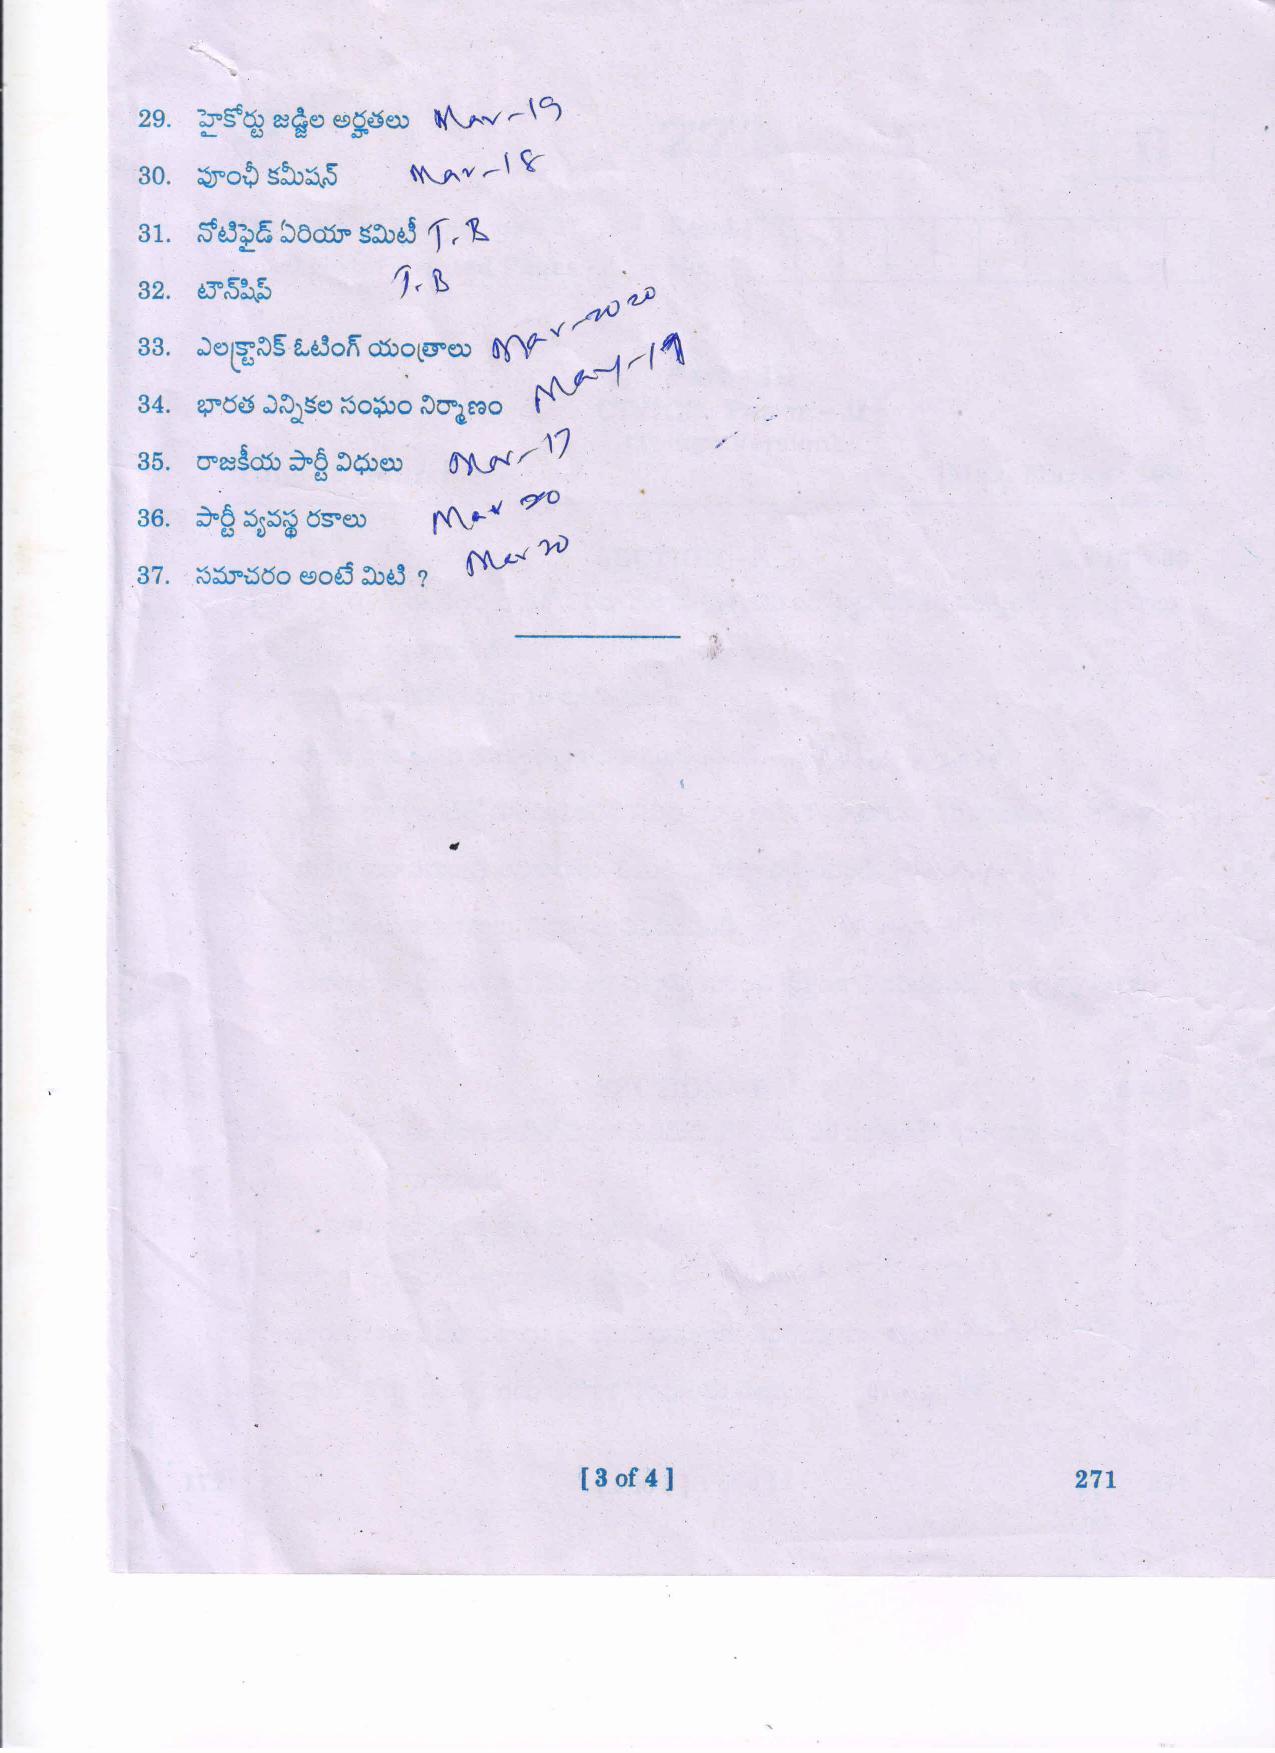 29. హైకోర్టు జడ్జిల అర్హతలు Mar-19
30. పూంఛీ కమీషన్ Mar-18
31. నోటిఫైడ్ ఏరియా కమిటీ T.B
32. టౌన్‌షిప్ T.B
33. ఎలక్ట్రానిక్ ఓటింగ్ యంత్రాలు Mar-2020
34. భారత ఎన్నికల సంఘం నిర్మాణం May-19
35. రాజకీయ పార్టీ విధులు Mar-17
36. పార్టీ వ్యవస్థ రకాలు Mar 20
37. సమాచరం అంటే మిటి ? Mar 20
[ 3 of 4 ] 271